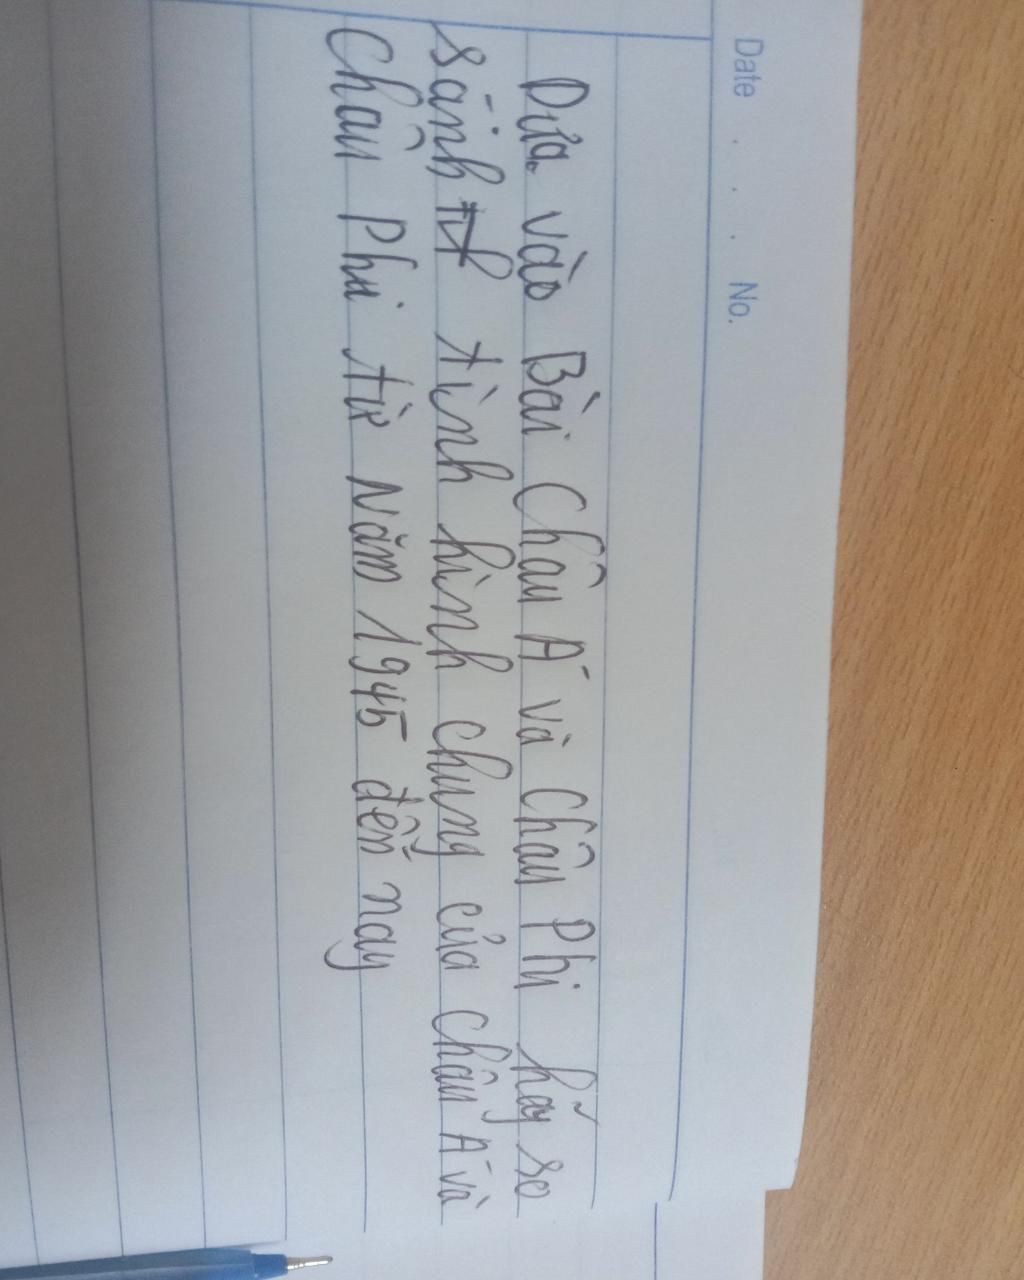 Date . . . No.
Dựa vào Bài Châu Á và Châu Phi hãy so
sánh tình hình chung của Châu Á và
Châu Phi từ Năm 1945 đến nay